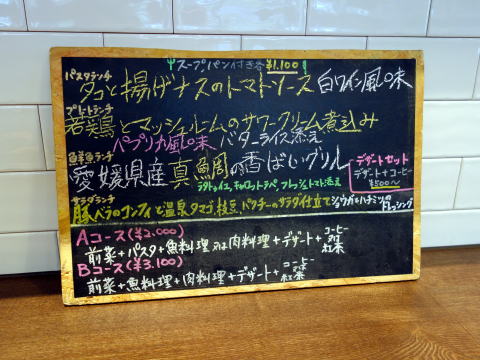 スープパン付き各¥1,100
パスタランチ
タコと揚げナスのトマトソース 白ワイン風味
プレートランチ
若鶏とマッシュルームのサワークリーム煮込み
パプリカ風味 バターライス添え
鮮魚ランチ
愛媛県産真鯛の香ばしいグリル
ラタトゥイユ、キャロットラペ、フレッシュトマト添え
デザートセット
デザート+コーヒー
¥500〜
サラダランチ
豚バラのコンフィと温泉タマゴ、枝豆、パクチーのサラダ仕立て ショウガとハチミツのドレッシング
Aコース(¥2,000)
前菜+パスタ+魚料理又は肉料理+デザート+コーヒー又は紅茶
Bコース(¥3,100)
前菜+魚料理+肉料理+デザート+コーヒー又は紅茶